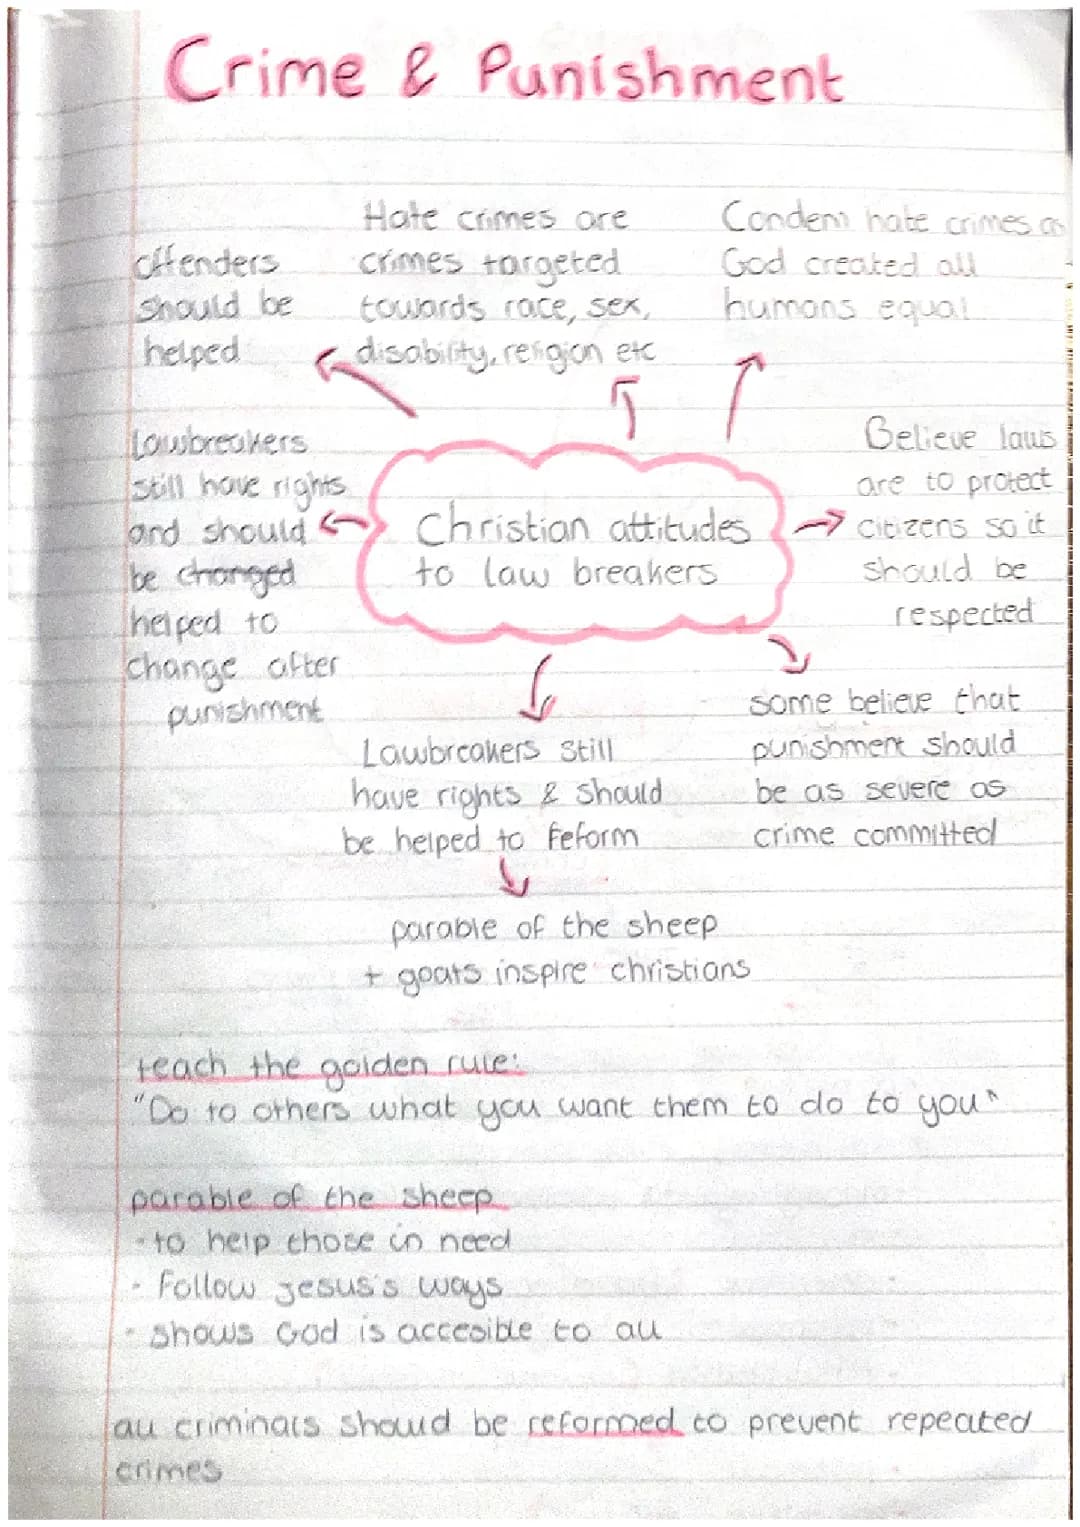 Crime & Punishment
offenders
should be
helped
Hate crimes are
crimes targeted
towards race, sex,
disability, religion etc
Condem hate crimes as
God created all
humans equal
Lawbreakers
still have rights
and should
be changed
helped to
change after
punishment
Christian attitudes
to law breakers
Believe laws
are to protect
citizens so it
should be
respected
Lawbreakers still
have rights & should
be helped to feform
some believe that
punishment should
be as severe as
crime committed
parable of the sheep
+ goats inspire christians
teach the golden rule:
"Do to others what you want them to do to you"
parable of the sheep
- to help those in need
- Follow jesus's ways
- shows God is accesible to all
all criminals should be reformed to prevent repeated
crimes